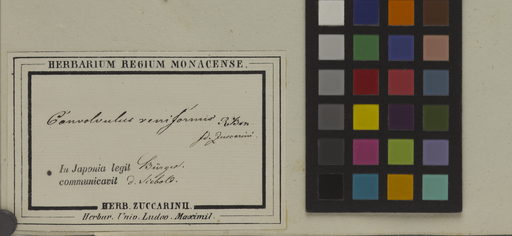 HERBARIUM REGIUM MONACENSE.
Convolvulus reniformis R. Br.
fd. Zuccarini.
In Japonia legit Bürger.
communicavit d. Siebold.
HERB. ZUCCARINII.
Herbar. Univ. Ludov. Maximil.